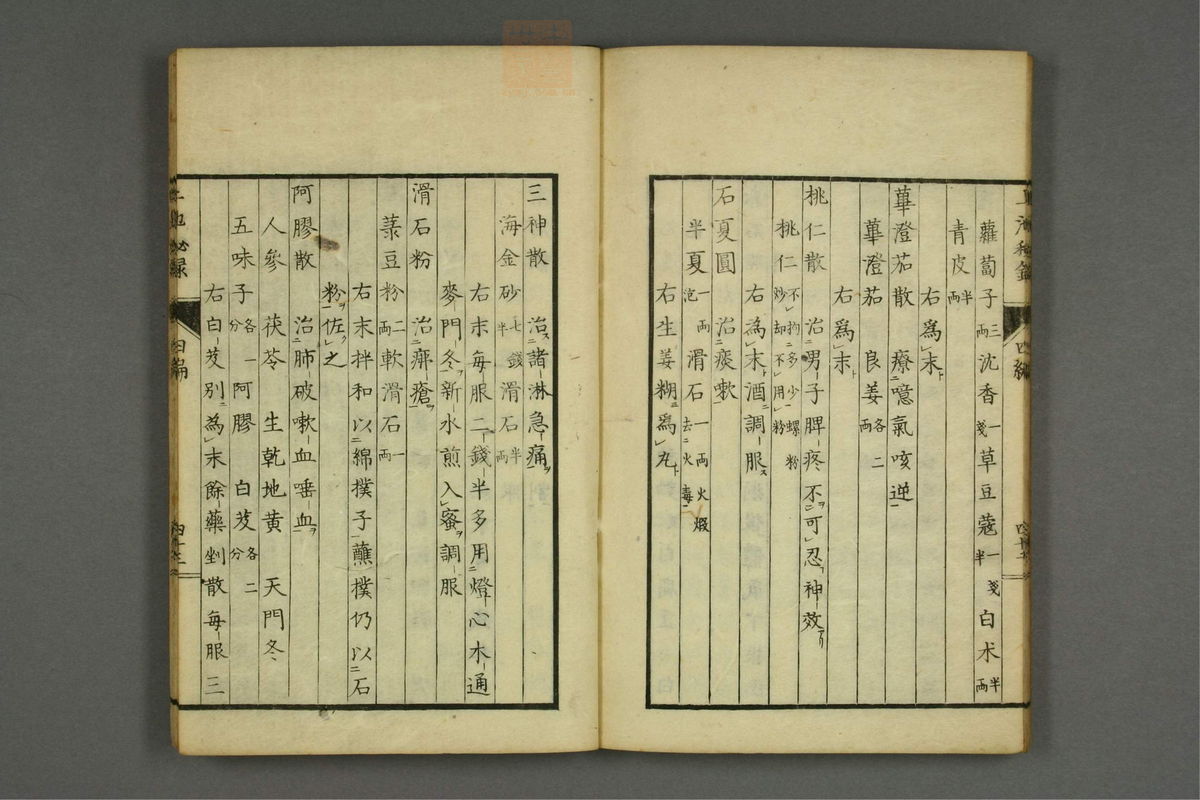 蘿蔔子三兩沈香一戔草豆蔻一戔半白朮半兩
青皮半兩
右爲末
蓽澄茄散 療噫氣咳逆
蓽澄茄 良姜各二兩
右爲末
桃仁散 治男子脾疼不可忍神效
桃仁不拘多少螺粉炒却不用粉
右為末酒調服
石夏圓 治痰嗽
半夏一兩泡滑石一兩火煅去火毒
右生姜糊爲丸
三神散 治諸淋急痛
海金砂七錢半滑石半兩
右末每服二錢半多用燈心木通
麥門冬新水煎入蜜調服
滑石粉 治痱瘡
菉豆粉二兩軟滑石一兩
右末拌和以綿撲子蘸撲仍以石
粉佐之
阿膠散 治肺破嗽血唾血
人參 茯苓 生乾地黄 天門冬
五味子各一分阿膠 白芨各二分
右白芨別為末餘藥剉散每服三
四編
四編